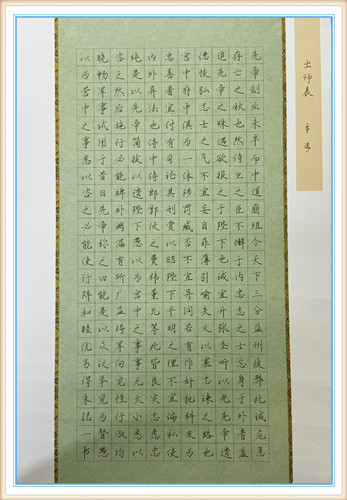 出师表
先帝创业未半而中道崩殂今天下三分益州疲弊此诚危急
存亡之秋也然侍卫之臣不懈于内忠志之士忘身于外者盖
追先帝之殊遇欲报之于陛下也诚宜开张圣听以光先帝遗
德恢弘志士之气不宜妄自菲薄引喻失义以塞忠谏之路也
宫中府中俱为一体陟罚臧否不宜异同若有作奸犯科及为
忠善者宜付有司论其刑赏以昭陛下平明之理不宜偏私使
内外异法也侍中侍郎郭攸之费祎董允等此皆良实志虑忠
纯是以先帝简拔以遗陛下愚以为宫中之事事无大小悉以
咨之然后施行必能裨补阙漏有所广益将军向宠性行淑均
晓畅军事试用于昔日先帝称之曰能是以众议举宠为督愚
以为营中之事悉以咨之必能使行阵和睦优劣得朱一书